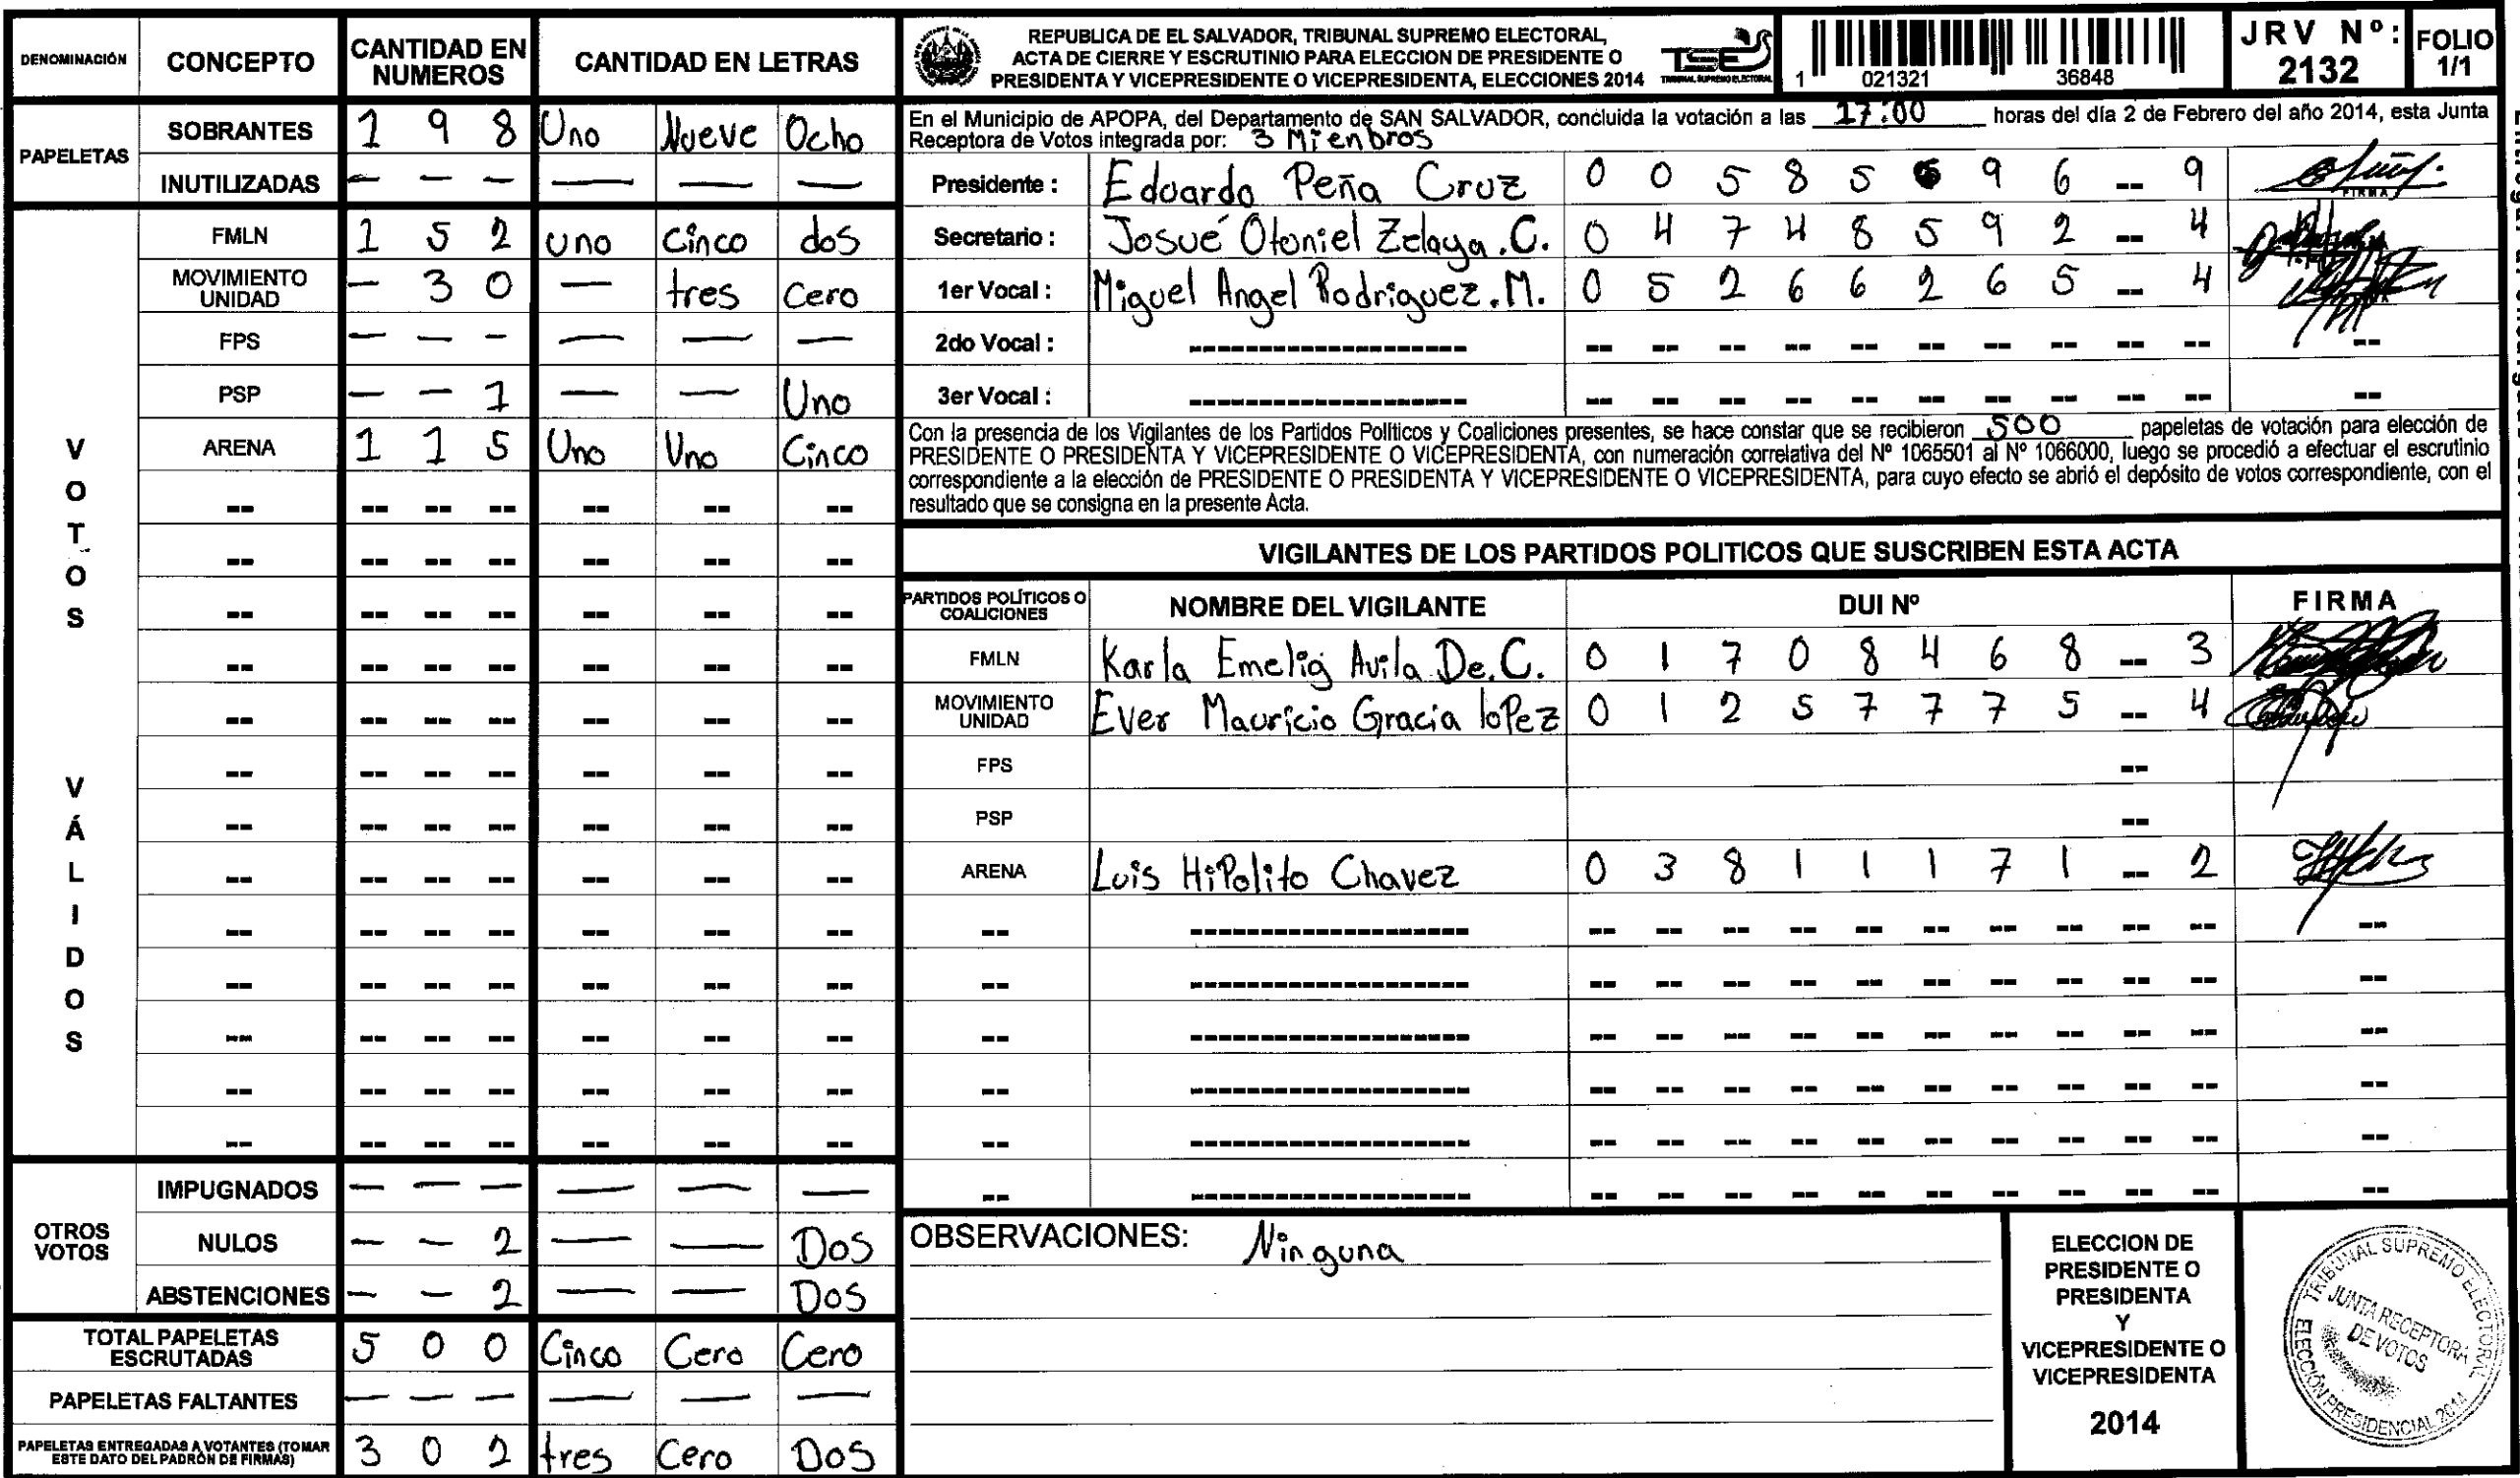 DENOMINACIÓN CONCEPTO CANTIDAD EN NUMEROS CANTIDAD EN LETRAS
PAPELETAS
SOBRANTES 1 9 8 Uno Nueve Ocho
INUTILIZADAS — — — — — —
VOTOS VÁLIDOS
FMLN 1 5 2 uno cinco dos
MOVIMIENTO UNIDAD — 3 0 — tres Cero
FPS — — — — — —
PSP — — 1 — — Uno
ARENA 1 1 5 Uno Uno Cinco
-- -- -- -- -- -- --
-- -- -- -- -- -- --
-- -- -- -- -- -- --
-- -- -- -- -- -- --
-- -- -- -- -- -- --
-- -- -- -- -- -- --
-- -- -- -- -- -- --
-- -- -- -- -- -- --
-- -- -- -- -- -- --
-- -- -- -- -- -- --
-- -- -- -- -- -- --
-- -- -- -- -- -- --
-- -- -- -- -- -- --
OTROS VOTOS
IMPUGNADOS — — — — — —
NULOS — — 2 — — Dos
ABSTENCIONES — — 2 — — Dos
TOTAL PAPELETAS ESCRUTADAS 5 0 0 Cinco Cero Cero
PAPELETAS FALTANTES — — — — — —
PAPELETAS ENTREGADAS A VOTANTES (TOMAR ESTE DATO DEL PADRÓN DE FIRMAS) 3 0 2 tres Cero Dos
REPUBLICA DE EL SALVADOR, TRIBUNAL SUPREMO ELECTORAL,
ACTA DE CIERRE Y ESCRUTINIO PARA ELECCION DE PRESIDENTE O
PRESIDENTA Y VICEPRESIDENTE O VICEPRESIDENTA, ELECCIONES 2014
TSE
TRIBUNAL SUPREMO ELECTORAL
1 021321 36848
JRV Nº: 2132
FOLIO 1/1
En el Municipio de APOPA, del Departamento de SAN SALVADOR, concluida la votación a las 17:00 horas del día 2 de Febrero del año 2014, esta Junta
Receptora de Votos integrada por: 3 Mienbros
Presidente : Eduardo Peña Cruz 0 0 5 8 5 6 9 6 -- 9
FIRMA
Secretario : Josué Otoniel Zelaya .C. 0 4 7 4 8 5 9 2 -- 4
1er Vocal : Miguel Angel Rodriguez .M. 0 5 2 6 6 2 6 5 -- 4
2do Vocal : ------------------- -- -- -- -- -- -- -- -- -- -- --
3er Vocal : ------------------- -- -- -- -- -- -- -- -- -- -- --
Con la presencia de los Vigilantes de los Partidos Políticos y Coaliciones presentes, se hace constar que se recibieron 500 papeletas de votación para elección de
PRESIDENTE O PRESIDENTA Y VICEPRESIDENTE O VICEPRESIDENTA, con numeración correlativa del Nº 1065501 al Nº 1066000, luego se procedió a efectuar el escrutinio
correspondiente a la elección de PRESIDENTE O PRESIDENTA Y VICEPRESIDENTE O VICEPRESIDENTA, para cuyo efecto se abrió el depósito de votos correspondiente, con el
resultado que se consigna en la presente Acta.
VIGILANTES DE LOS PARTIDOS POLITICOS QUE SUSCRIBEN ESTA ACTA
PARTIDOS POLÍTICOS O COALICIONES NOMBRE DEL VIGILANTE DUI Nº FIRMA
FMLN Karla Emelig Avila De.C. 0 1 7 0 8 4 6 8 -- 3
MOVIMIENTO UNIDAD Ever Mauricio Gracia loPez 0 1 2 5 7 7 7 5 -- 4
FPS --
PSP --
ARENA Luis HiPolito Chavez 0 3 8 1 1 1 7 1 -- 2
-- ------------------- -- -- -- -- -- -- -- -- -- -- --
-- ------------------- -- -- -- -- -- -- -- -- -- -- --
-- ------------------- -- -- -- -- -- -- -- -- -- -- --
-- ------------------- -- -- -- -- -- -- -- -- -- -- --
-- ------------------- -- -- -- -- -- -- -- -- -- -- --
-- ------------------- -- -- -- -- -- -- -- -- -- -- --
OBSERVACIONES: Ninguna
ELECCION DE
PRESIDENTE O
PRESIDENTA
Y
VICEPRESIDENTE O
VICEPRESIDENTA
2014
TRIBUNAL SUPREMO ELECTORAL
JUNTA RECEPTORA
DE VOTOS
ELECCIÓN PRESIDENCIAL 2014